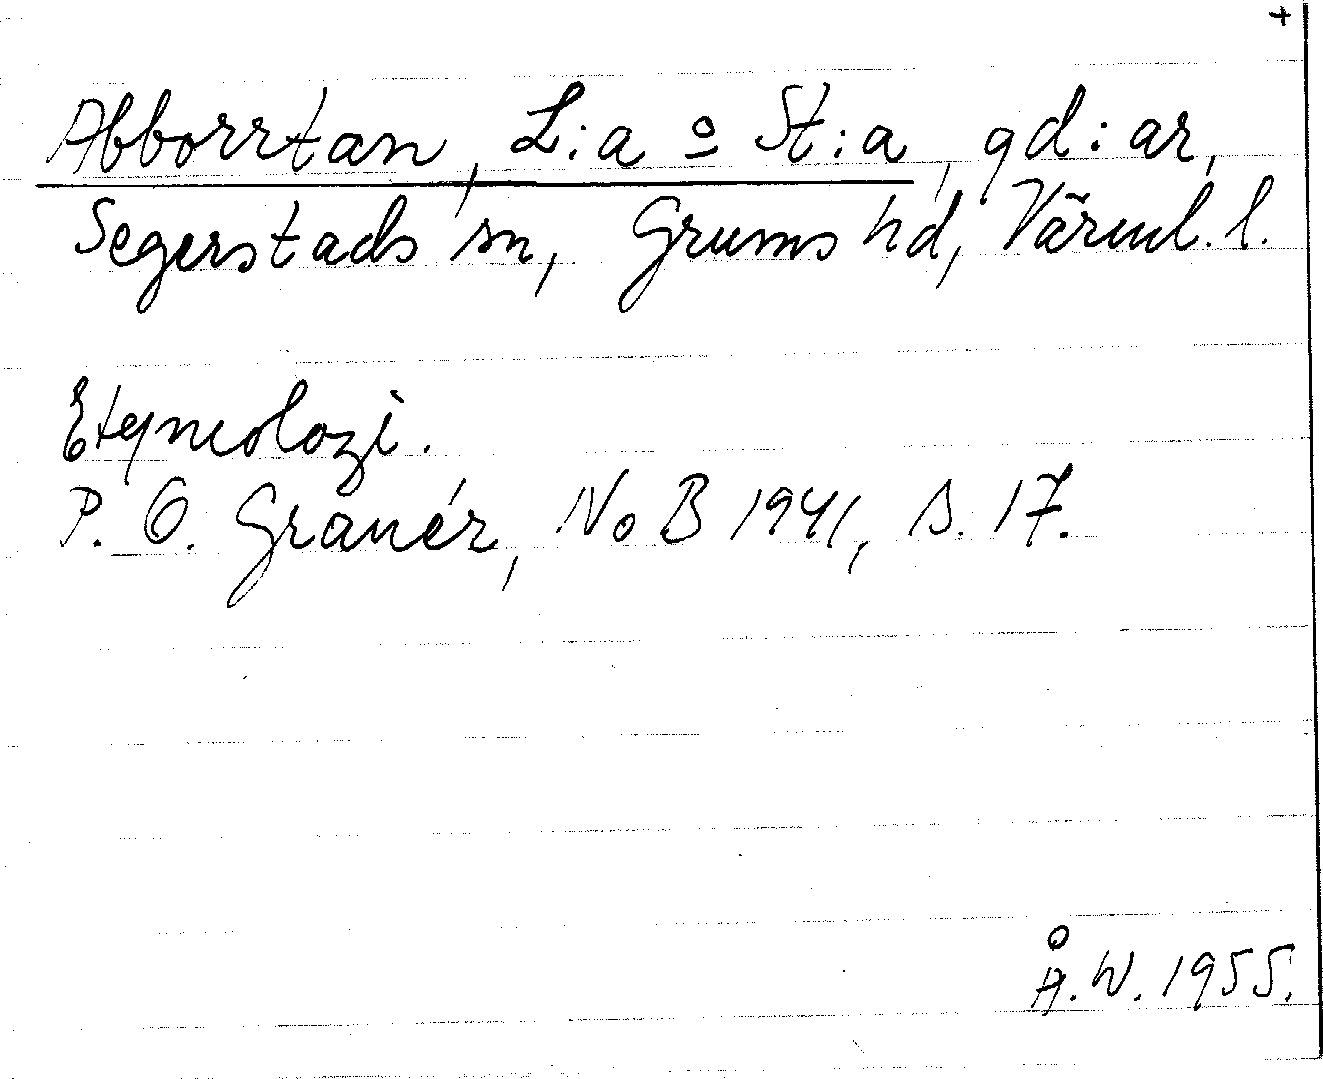 +
Abborrtan, L:a o St:a, gd:ar,
Segerstads sn, Grums hd, Värml. l.
Etymologi.
P. O. Granér, NoB 1941, s. 17.
Å.W. 1955.